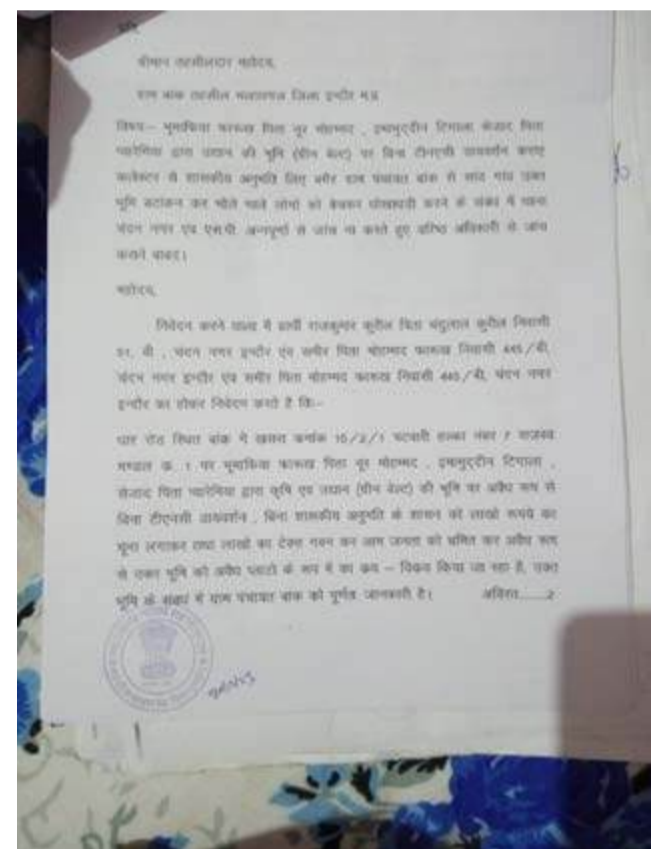 प्रति,
श्रीमान तहसीलदार महोदय,
ग्राम बांक तहसील मल्हारगंज जिला इन्दौर म.प्र.
विषय:- भूमाफिया फारूख पिता नूर मोहम्मद , इमामुद्दीन टिमाला सेजाद पिता
प्यारेमिया द्वारा उद्यान की भूमि (ग्रीन बेल्ट) पर बिना टीएनसी डायवर्शन कराए
कलेक्टर से शासकीय अनुमति लिए बगैर ग्राम पंचायत बांक से सांठ गांठ उक्त
भूमि बटांकन कर भोले भाले लोगों को बेचकर धोखाधड़ी करने के संबंध में थाना
चंदन नगर एवं एस.पी. अन्नपूर्णा से जांच ना करते हुए वरिष्ठ अधिकारी से जांच
कराने बाबद।
महोदय,
निवेदन करने वाला में प्रार्थी राजकुमार कुरील पिता चंदुलाल कुरील निवासी
51, बी , चंदन नगर इन्दौर एवं समीर पिता मोहम्मद फारूख निवासी 445/बी,
चंदन नगर इन्दौर एवं समीर पिता मोहम्मद फारूख निवासी 445/बी, चंदन नगर
इन्दौर का होकर निवेदन करते है कि:-
धार रोड स्थित बांक में खसरा क्रमांक 15/2/1 पटवारी हल्का नंबर 7 राजस्व
मण्डल क्र. 1 पर भूमाफिया फारूख पिता नूर मोहम्मद , इमामुद्दीन टिमाला ,
सेजाद पिता प्यारेमिया द्वारा कृषि एवं उद्यान (ग्रीन बेल्ट) की भूमि पर अवैध रूप से
बिना टीएनसी डायवर्शन , बिना शासकीय अनुमति के शासन को लाखों रूपये का
चूना लगाकर तथा लाखों का टेक्स गबन कर आम जनता को भ्रमित कर अवैध रूप
से उक्त भूमि को अवैध प्लाटों के रूप में का क्रय – विक्रय किया जा रहा है, उक्त
भूमि के संबंध में ग्राम पंचायत बांक को पूर्णतः जानकारी है। अविरत......2